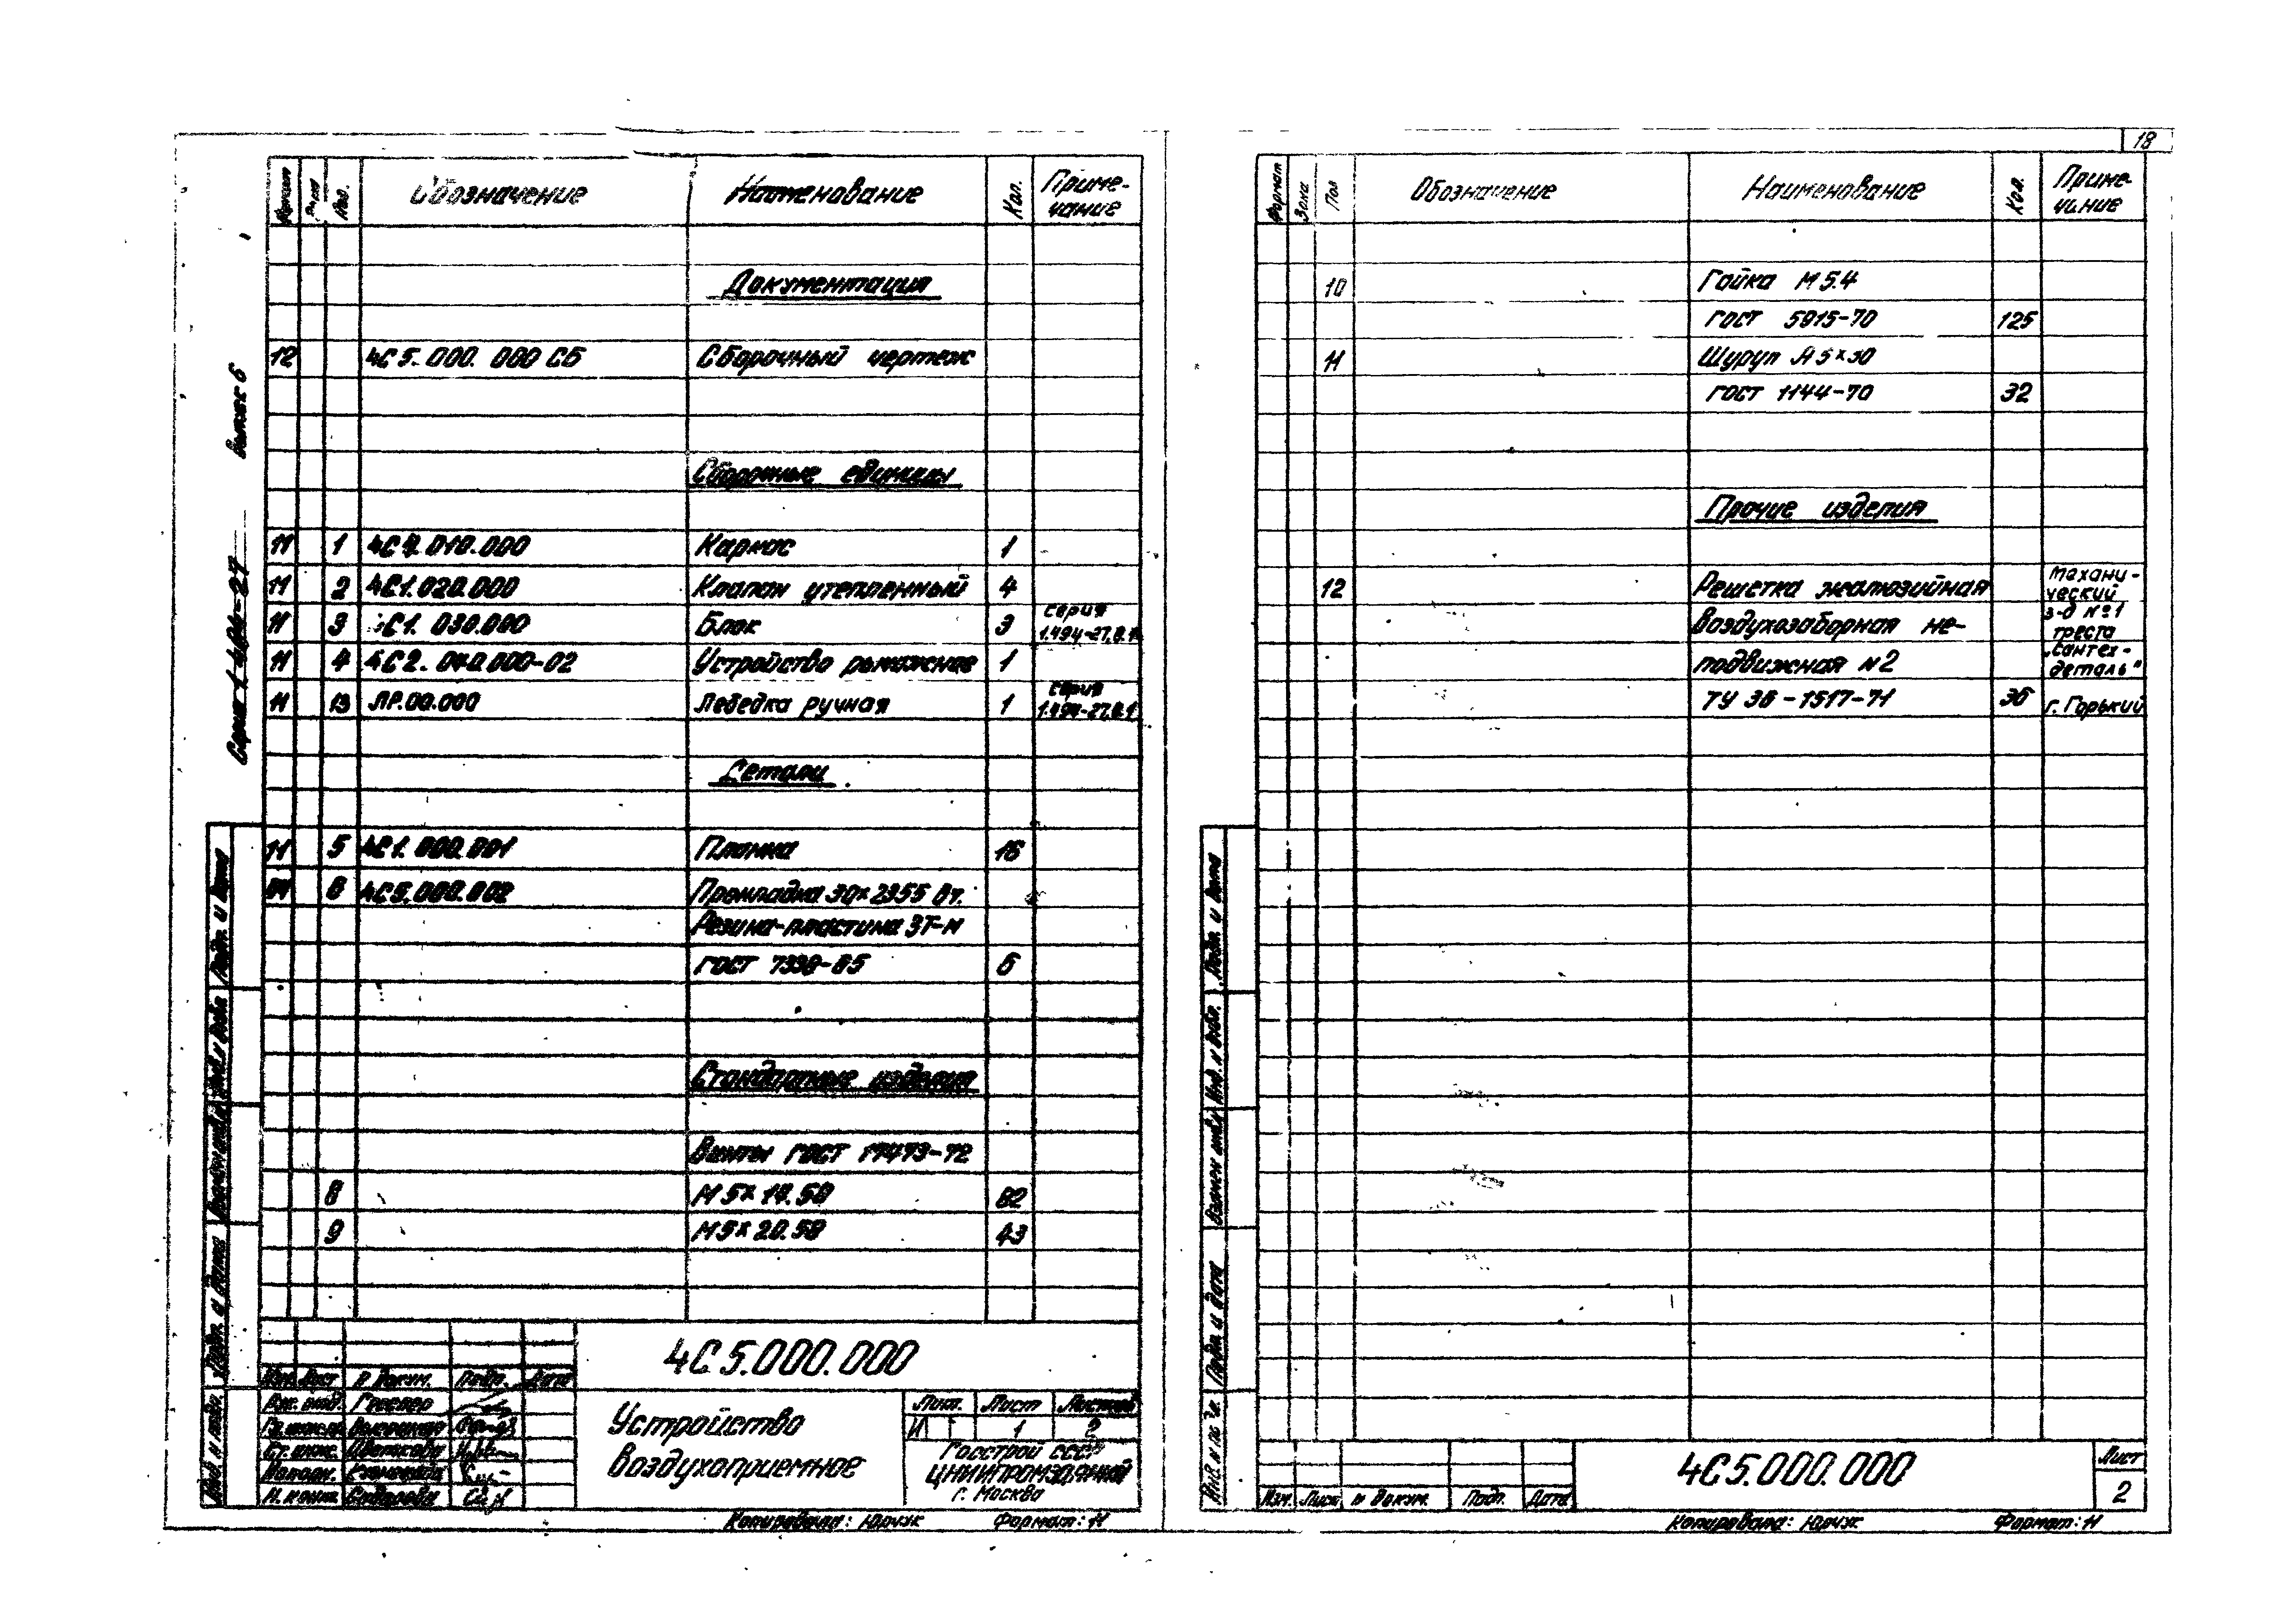 18
Серия 1.494-27 выпуск 6
Формат Зона Поз. Обозначение Наименование Кол. Приме-
чание
Документация
12 4С5.000.000 СБ Сборочный чертеж
Сборочные единицы
11 1 4С4.010.000 Каркас 1
11 2 4С1.020.000 Клапан утепленный 4
11 3 4С1.030.000 Блок 3 серия
1.494-27, в.1
11 4 4С2.040.000-02 Устройство рычажное 1
11 13 ЛР.00.000 Лебедка ручная 1 серия
1.494-27, в.1
Детали
11 5 4С1.000.001 Планка 16
6 4С5.000.002 Прокладка 30×2355 Вт.
Резина-пластина 3Т-М
ГОСТ 7338-65 6
Стандартные изделия
Винты ГОСТ 17473-72
8 М5×14.58 82
9 М5×20.58 43
4С5.000.000
Изм. Лист № Докум. Подп. Дата
Устройство
воздухоприемное
Лит. Лист Листов
И 1 2
Госстрой СССР
ЦНИИПРОМЗДАНИЙ
г. Москва
Н. контр.
Копировала: Юрчук Формат: 11
Подп. и дата
Взамен инв.№ Инв. № дубл.
Подп. и дата
Инв. № подл.
Формат Зона Поз Обозначение Наименование Кол. Приме-
чание
10 Гайка М5.4
ГОСТ 5915-70 125
11 Шуруп А5×30
ГОСТ 1144-70 32
Прочие изделия
12 Решетка жалюзийная
воздухозаборная не-
подвижная №2
ТУ 36-1517-71 36
Механи-
ческий
з-д №1
треста
„Сантех-
деталь"
г. Горький
Подп. и дата
Взамен инв.№ Инв. № дубл.
Подп. и дата
Инв. № подл.
Изм. Лист № Докум. Подп. Дата
4С5.000.000
Лист
2
Копировала: Юрчук Формат: 11